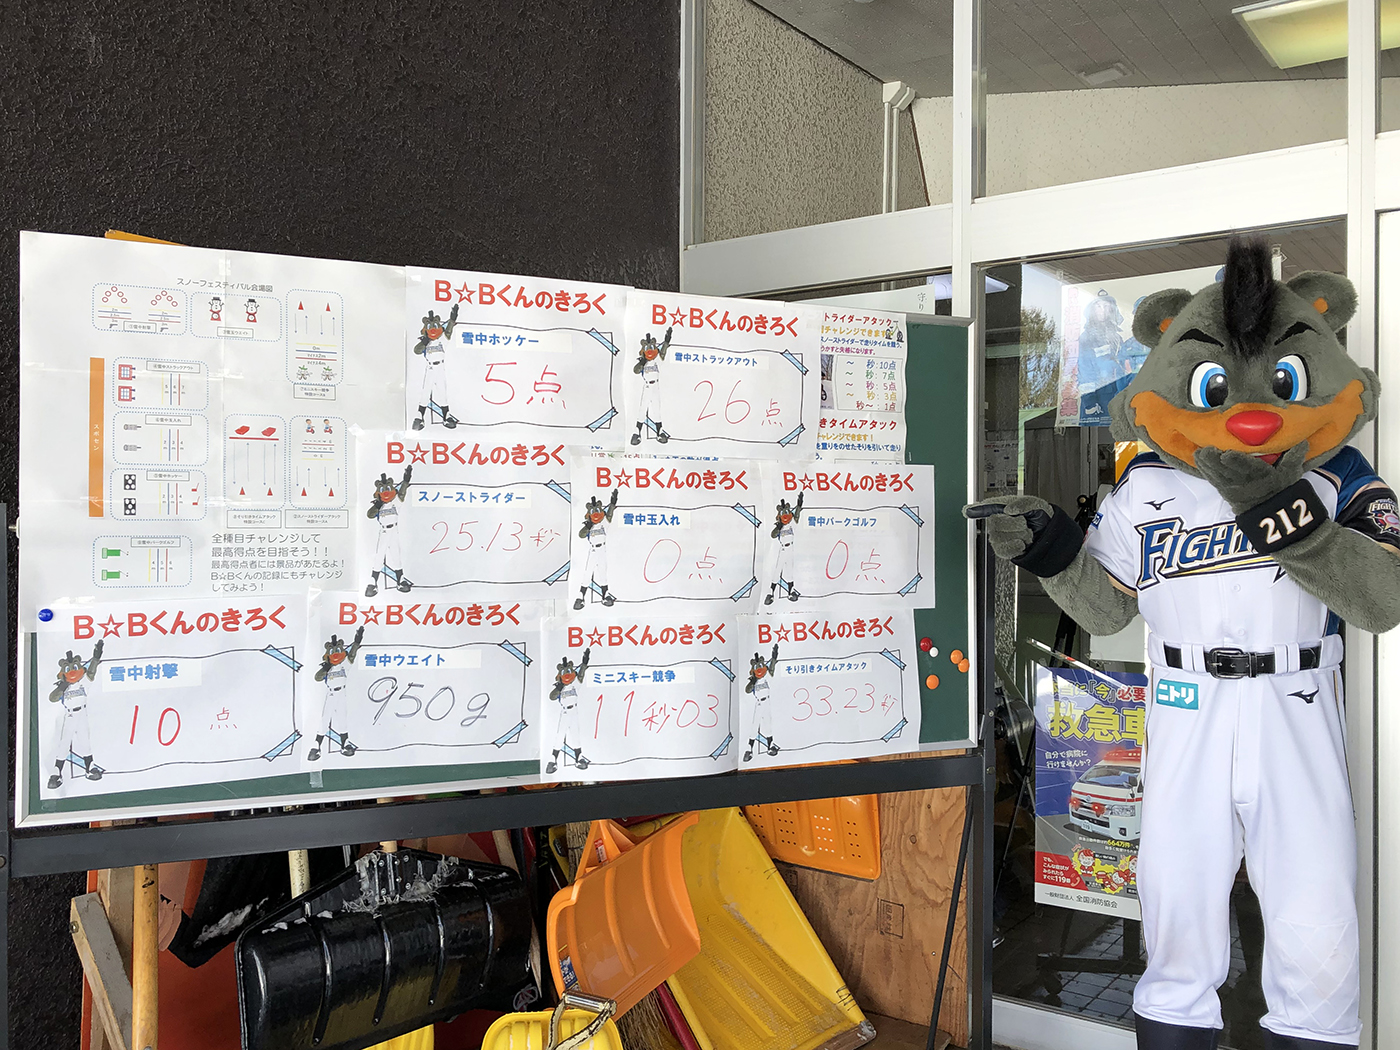 スノーフェスティバル会場図
スポセン
全種目チャレンジして
最高得点を目指そう！！
最高得点者には景品があたるよ！
B☆Bくんの記録にもチャレンジ
してみよう！
B☆Bくんのきろく
雪中ホッケー
5点
B☆Bくんのきろく
雪中ストラックアウト
26点
トライダーアタック
チャレンジできます
秒:10点
～ 秒: 7点
～ 秒: 5点
～ 秒: 3点
秒～ : 1点
きタイムアタック
チャレンジできます！
B☆Bくんのきろく
スノーストライダー
25.13秒
B☆Bくんのきろく
雪中玉入れ
0点
B☆Bくんのきろく
雪中パークゴルフ
0点
B☆Bくんのきろく
雪中射撃
10点
B☆Bくんのきろく
雪中ウエイト
950g
B☆Bくんのきろく
ミニスキー競争
11秒03
B☆Bくんのきろく
そり引きタイムアタック
33.23秒
FIGHT
212
ニトリ
「今」必要
救急車
自分で病院に
行けませんか？
でも、
こんな症状が
みられたら
すぐに119番
一般財団法人 全国消防協会